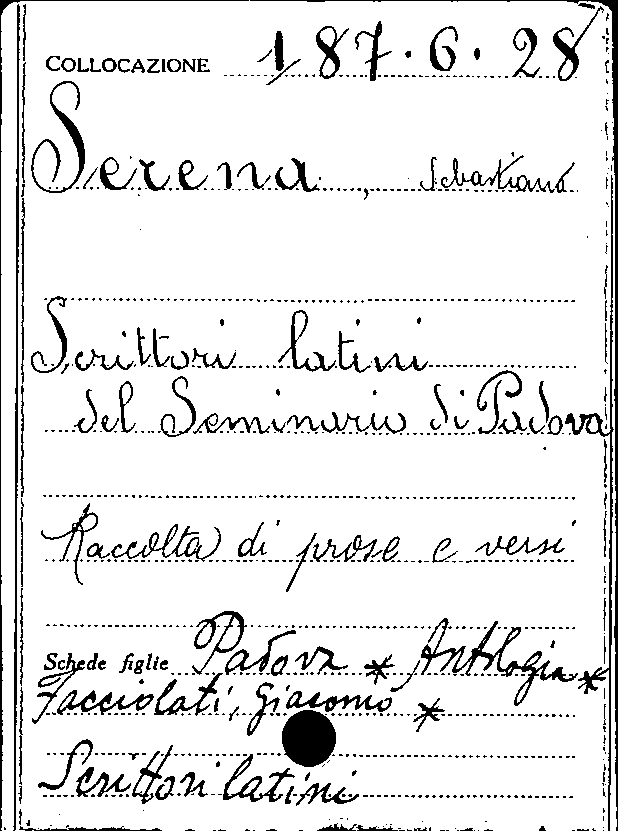 COLLOCAZIONE 187.6.28
Serena, Sebastiano
Scrittori latini
del Seminario di Padova
Raccolta di prose e versi
Schede figlie Padova * Antologia *
Facciolati, Giacomo *
Scrittori latini